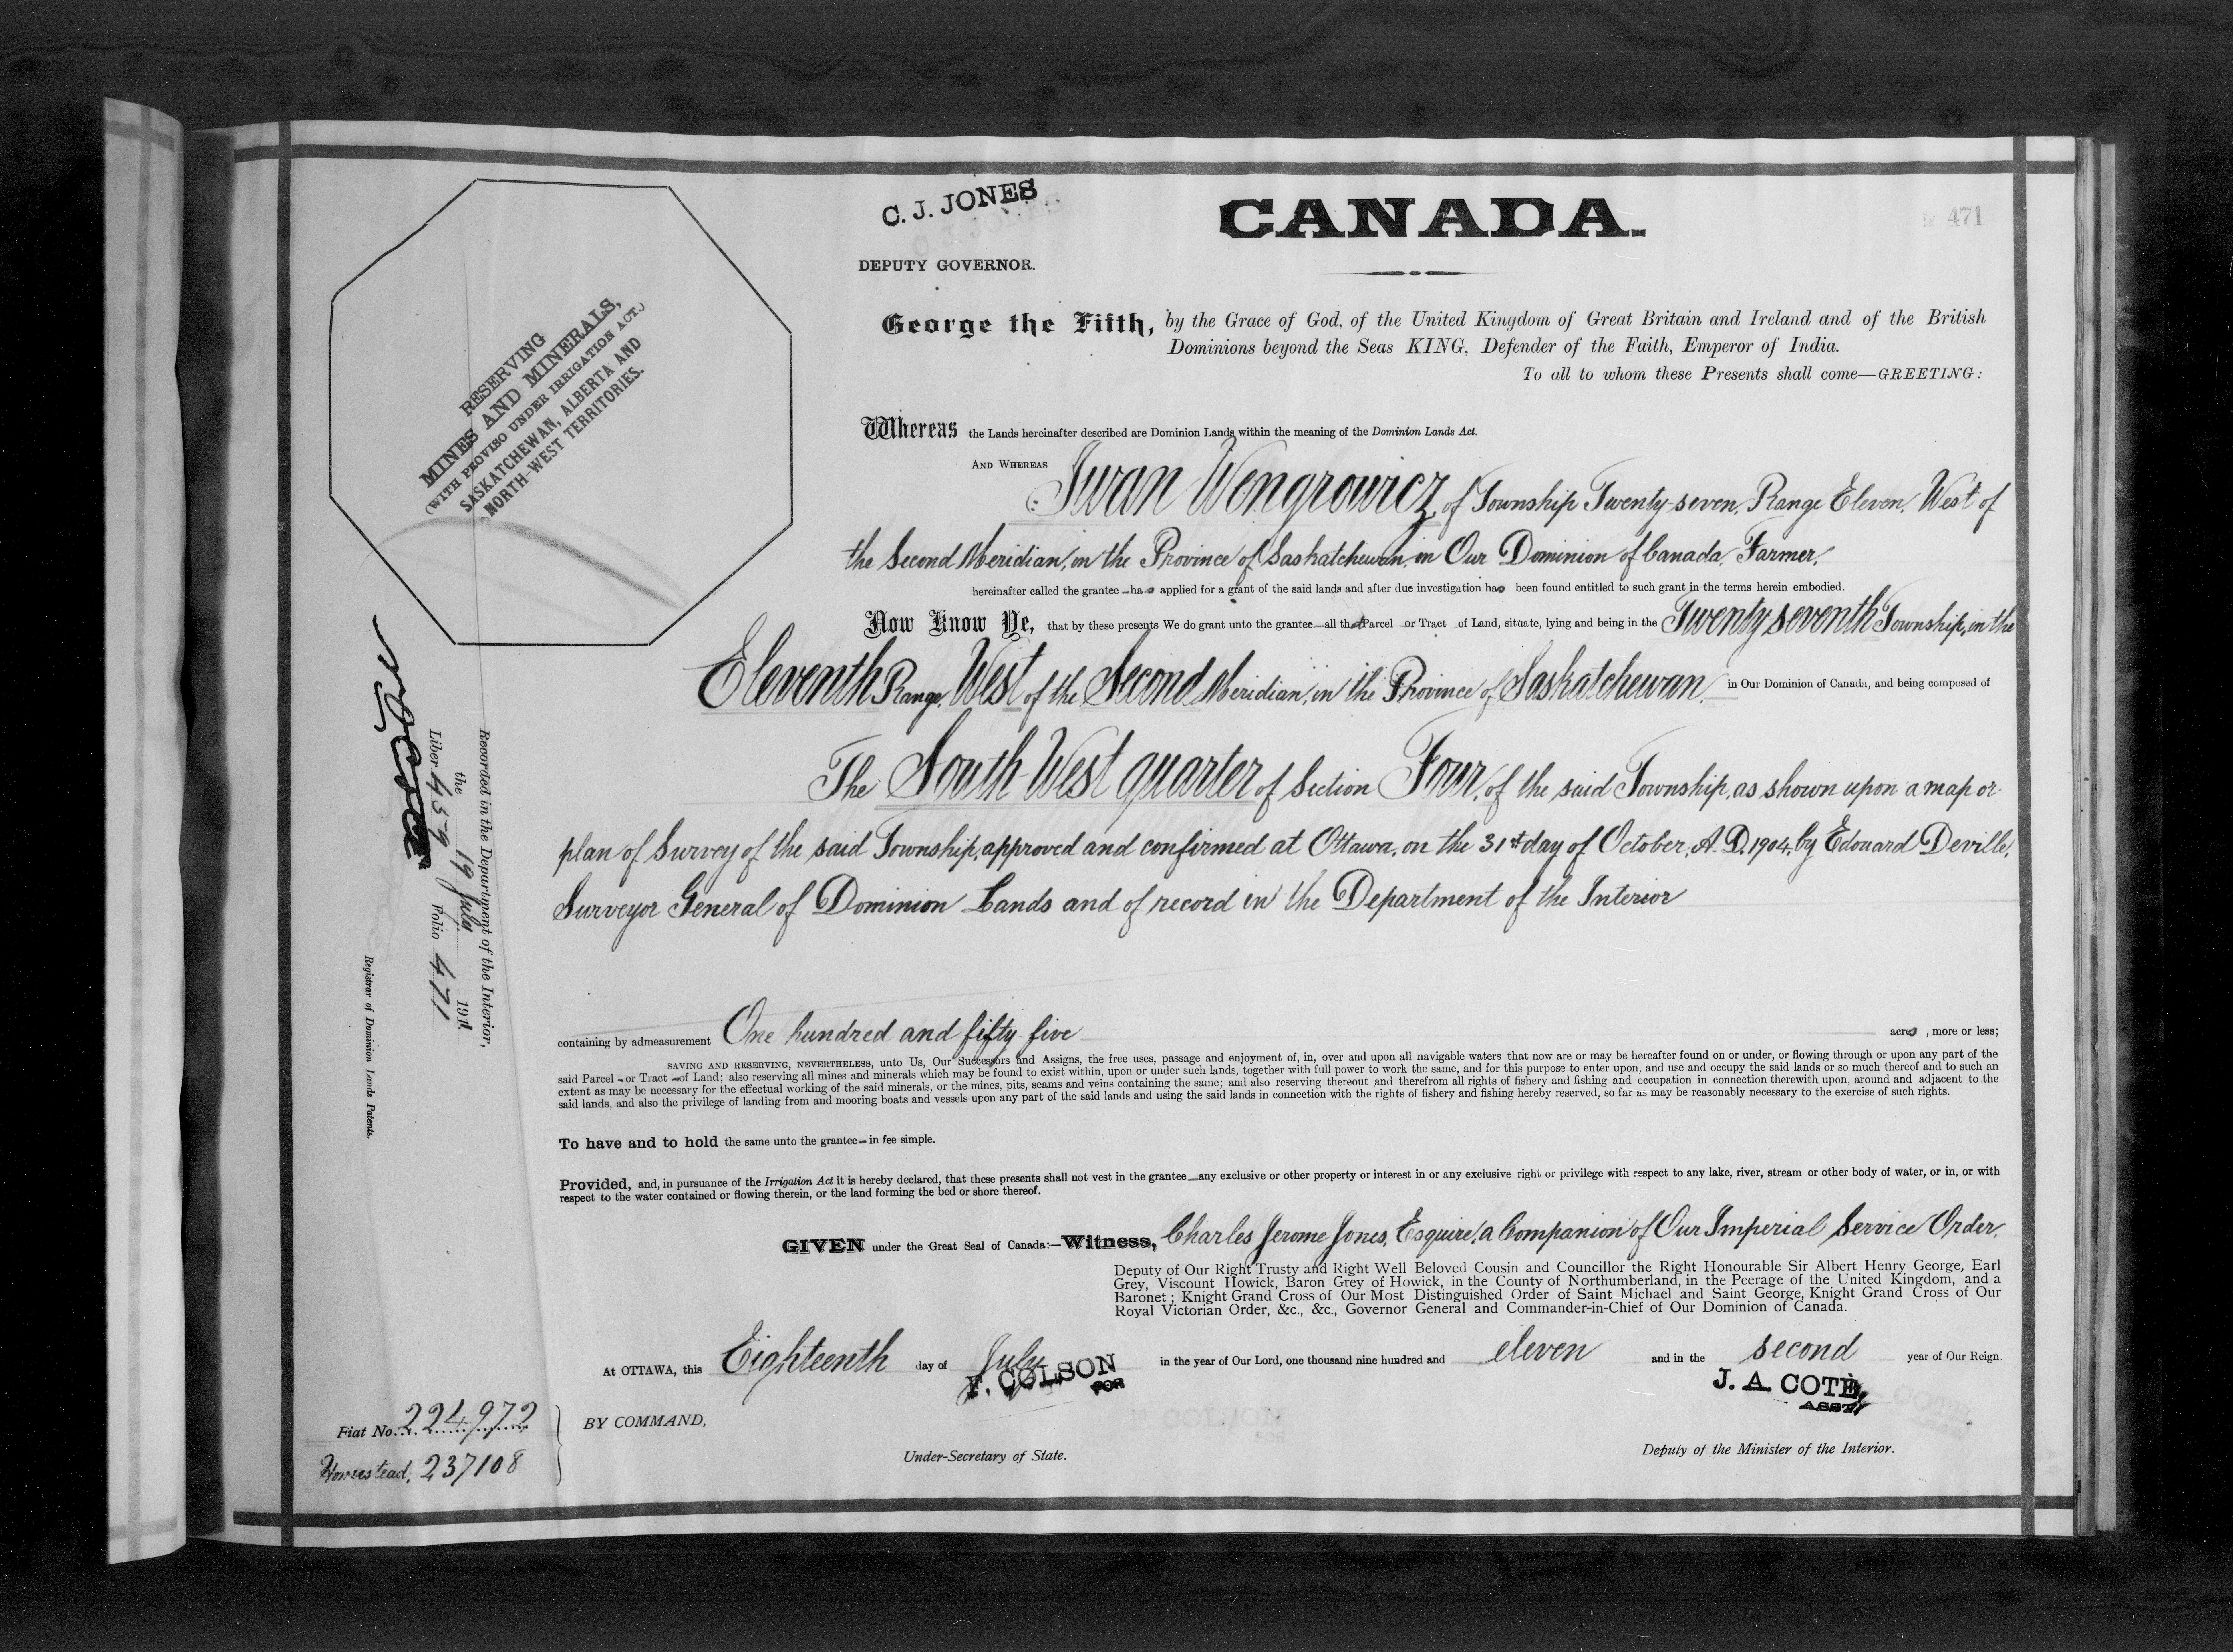 C. J. JONES
DEPUTY GOVERNOR.
CANADA.
471
RESERVING
MINES AND MINERALS,
(WITH PROVISO UNDER IRRIGATION ACT.)
SASKATCHEWAN, ALBERTA AND
NORTH-WEST TERRITORIES.
George the Fifth, by the Grace of God, of the United Kingdom of Great Britain and Ireland and of the British
Dominions beyond the Seas KING, Defender of the Faith, Emperor of India.
To all to whom these Presents shall come—GREETING:
Whereas the Lands hereinafter described are Dominion Lands within the meaning of the Dominion Lands Act.
AND WHEREAS Iwan Wengrowicz, of Township Twenty-seven, Range Eleven, West of
the Second Meridian, in the Province of Saskatchewan, in Our Dominion of Canada, Farmer,
hereinafter called the grantee—has applied for a grant of the said lands and after due investigation has been found entitled to such grant in the terms herein embodied.
Now Know Ye, that by these presents We do grant unto the grantee—all that Parcel or Tract of Land, situate, lying and being in the Twenty seventh Township, in the
Eleventh Range, West of the Second Meridian, in the Province of Saskatchewan, in Our Dominion of Canada, and being composed of
The South West quarter of Section Four, of the said Township, as shown upon a map or
plan of Survey of the said Township, approved and confirmed at Ottawa, on the 31st day of October, A.D. 1904, by Edouard Deville,
Surveyor General of Dominion Lands and of record in the Department of the Interior
containing by admeasurement One hundred and fifty five acres, more or less;
SAVING AND RESERVING, NEVERTHELESS, unto Us, Our Successors and Assigns, the free uses, passage and enjoyment of, in, over and upon all navigable waters that now are or may be hereafter found on or under, or flowing through or upon any part of the
said Parcel - or Tract - of Land; also reserving all mines and minerals which may be found to exist within, upon or under such lands, together with full power to work the same, and for this purpose to enter upon, and use and occupy the said lands or so much thereof and to such an
extent as may be necessary for the effectual working of the said minerals, or the mines, pits, seams and veins containing the same; and also reserving thereout and therefrom all rights of fishery and fishing and occupation in connection therewith upon, around and adjacent to the
said lands, and also the privilege of landing from and mooring boats and vessels upon any part of the said lands and using the said lands in connection with the rights of fishery and fishing hereby reserved, so far as may be reasonably necessary to the exercise of such rights.
To have and to hold the same unto the grantee - in fee simple.
Provided, and, in pursuance of the Irrigation Act it is hereby declared, that these presents shall not vest in the grantee—any exclusive or other property or interest in or any exclusive right or privilege with respect to any lake, river, stream or other body of water, or in, or with
respect to the water contained or flowing therein, or the land forming the bed or shore thereof.
GIVEN under the Great Seal of Canada:—Witness, Charles Jerome Jones, Esquire, a Companion of Our Imperial Service Order,
Deputy of Our Right Trusty and Right Well Beloved Cousin and Councillor the Right Honourable Sir Albert Henry George, Earl
Grey, Viscount Howick, Baron Grey of Howick, in the County of Northumberland, in the Peerage of the United Kingdom, and a
Baronet; Knight Grand Cross of Our Most Distinguished Order of Saint Michael and Saint George, Knight Grand Cross of Our
Royal Victorian Order, &c., &c., Governor General and Commander-in-Chief of Our Dominion of Canada.
At OTTAWA, this Eighteenth day of July in the year of Our Lord, one thousand nine hundred and eleven and in the second year of Our Reign.
F. COLSON
FOR
J. A. COTE,
ASST
BY COMMAND,
Under-Secretary of State.
Deputy of the Minister of the Interior.
Fiat No. 224972
Homestead, 237108
Recorded in the Department of the Interior,
the 19 July 1911
Liber 459 Folio 471
Registrar of Dominion Lands Patents.